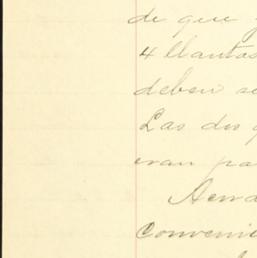 de que
4 llantas
deben se
Las dos q
eran pa
Conveni